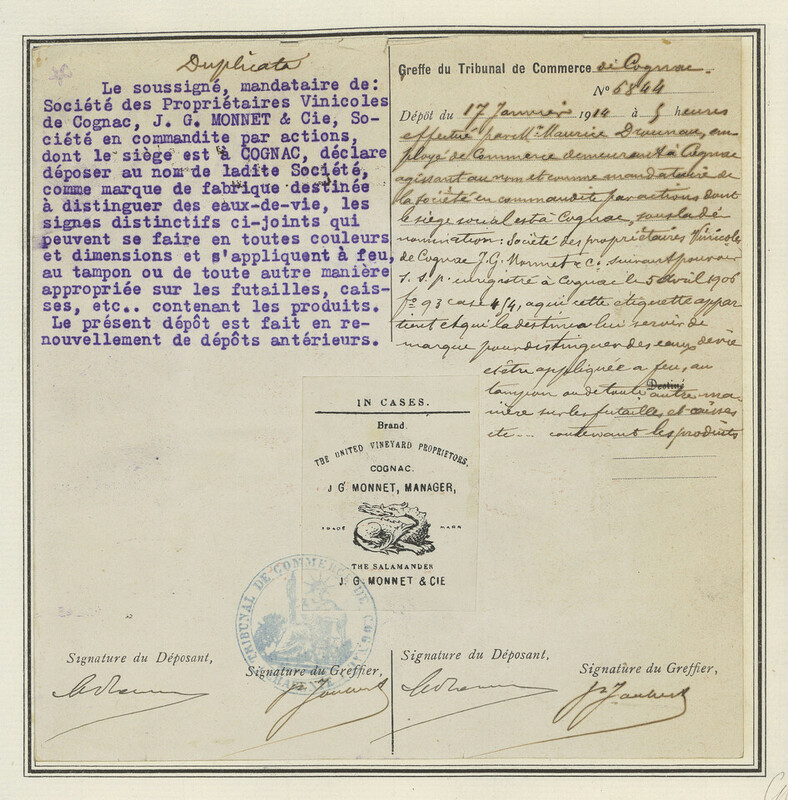 Duplicata
Le soussigné, mandataire de:
Société des Propriétaires Vinicoles
de Cognac, J. G. MONNET & Cie, So-
ciété en commandite par actions,
dont le siège est à COGNAC, déclare
déposer au nom de ladite Société,
comme marque de fabrique destinée
à distinguer des eaux-de-vie, les
signes distinctifs ci-joints qui
peuvent se faire en toutes couleurs
et dimensions et s'appliquent à feu,
au tampon ou de toute autre manière
appropriée sur les futailles, cais-
ses, etc.. contenant les produits.
Le présent dépôt est fait en re-
nouvellement de dépôts antérieurs.
Greffe du Tribunal de Commerce de Cognac.
N° 6844
Dépôt du 17 Janvier 1914 à 5 heures
effectué par Mr Maurice em
ployé de Commerce demeurant à Cognac
agissant au nom et comme mandataire de
la société en commandite par actions dont
le siège social est à Cognac, sous la dé
nomination: Société des propriétaires Vinicoles
de Cognac J. G. Monnet & Co. suivant pouvoir
s. s. p. enregistré à Cognac le 5 avril 1906
fo 93 case 454, a qui cette etiquette appar
tient et qui la destine a lui servir de
marque pour distinguer des eaux de vie
et être appliquée a feu, au
tampon ou de toute Destiné autre ma-
nière sur les futailles et caisses
etc... contenant les produits
IN CASES.
Brand.
THE UNITED VINEYARD PROPRIETORS,
COGNAC.
J G MONNET, MANAGER,
TRADE MARK
THE SALAMANDER
J. G. MONNET & CIE
TRIBUNAL DE COMMERCE DE COGNAC
Signature du Déposant,
Signature du Greffier,
Joubert
Signature du Déposant,
Signature du Greffier,
Joubert